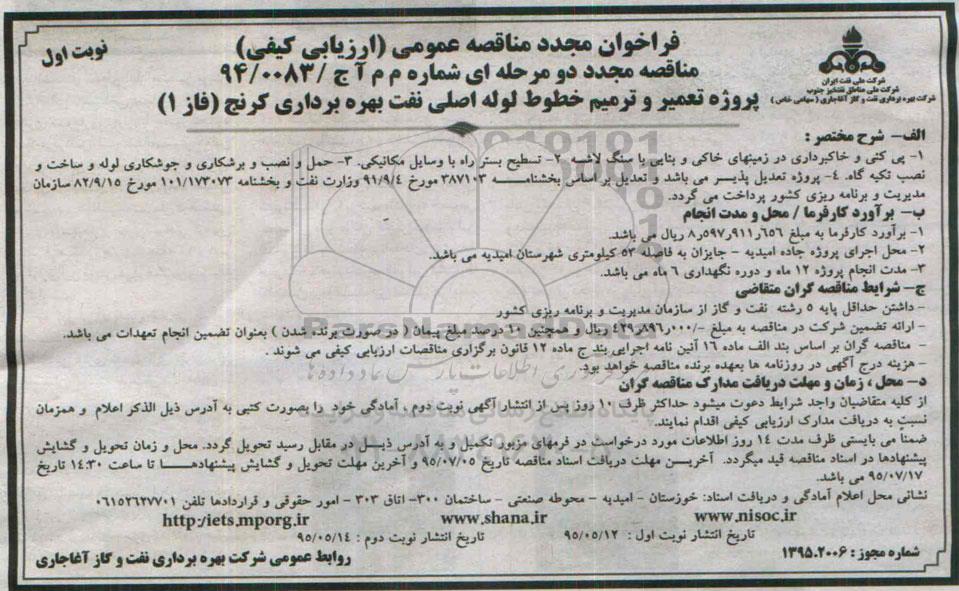 شرکت ملی نفت ایران
شرکت ملی مناطق نفتخیز جنوب
شرکت بهره برداری نفت و گاز آغاجاری (سهامی خاص)
فراخوان مجدد مناقصه عمومی (ارزیابی کیفی)
نوبت اول
مناقصه مجدد دو مرحله ای شماره م م آ ج /۹۴/۰۰۸۳
پروژه تعمیر و ترمیم خطوط لوله اصلی نفت بهره برداری کرنج (فاز ۱)
الف- شرح مختصر :
۱- پی کنی و خاکبرداری در زمینهای خاکی و بنایی با سنگ لاشه ۲- تسطیح بستر راه با وسایل مکانیکی. ۳- حمل و نصب و برشکاری و جوشکاری لوله و ساخت و
نصب تکیه گاه. ۴- پروژه تعدیل پذیر می باشد و تعدیل بر اساس بخشنامه ۳۸۷۱۰۳ مورخ ۹۱/۹/۴ وزارت نفت و بخشنامه ۱۰۱/۱۷۳۰۷۳ مورخ ۸۲/۹/۱۵ سازمان
مدیریت و برنامه ریزی کشور پرداخت می گردد.
ب- برآورد کارفرما / محل و مدت انجام
۱- برآورد کارفرما به مبلغ ۸٫۵۹۷٫۹۱۱٫۶۵۶ ریال می باشد.
۲- محل اجرای پروژه جاده امیدیه - جایزان به فاصله ۵۳ کیلومتری شهرستان امیدیه می باشد.
۳- مدت انجام پروژه ۱۲ ماه و دوره نگهداری ۶ ماه می باشد.
ج- شرایط مناقصه گران متقاضی
- داشتن حداقل پایه ۵ رشته نفت و گاز از سازمان مدیریت و برنامه ریزی کشور
- ارائه تضمین شرکت در مناقصه به مبلغ -/۴۲۹٫۸۹۶٫۰۰۰ ریال و همچنین ۱۰ درصد مبلغ پیمان ( در صورت برنده شدن ) بعنوان تضمین انجام تعهدات می باشد.
- مناقصه گران بر اساس بند الف ماده ۱۶ آئین نامه اجرایی بند ج ماده ۱۲ قانون برگزاری مناقصات ارزیابی کیفی می شوند .
- هزینه درج آگهی در روزنامه ها بعهده برنده مناقصه خواهد بود.
د- محل ، زمان و مهلت دریافت مدارک مناقصه گران
از کلیه متقاضیان واجد شرایط دعوت میشود حداکثر ظرف ۱۰ روز پس از انتشار آگهی نوبت دوم ، آمادگی خود را بصورت کتبی به آدرس ذیل الذکر اعلام و همزمان
نسبت به دریافت مدارک ارزیابی کیفی اقدام نمایند.
ضمناً می بایستی ظرف مدت ۱۴ روز اطلاعات مورد درخواست در فرمهای مزبور تکمیل و به آدرس ذیل در مقابل رسید تحویل گردد. محل و زمان تحویل و گشایش
پیشنهادها در اسناد مناقصه قید میگردد. آخرین مهلت دریافت اسناد مناقصه تاریخ ۹۵/۰۷/۰۵ و آخرین مهلت تحویل و گشایش پیشنهادها تا ساعت ۱۴:۳۰ تاریخ
۹۵/۰۷/۱۷ می باشد.
نشانی محل اعلام آمادگی و دریافت اسناد: خوزستان - امیدیه - محوطه صنعتی - ساختمان ۳۰۰- اتاق ۳۰۳ - امور حقوقی و قراردادها تلفن ۰۶۱۵۲۶۲۷۷۰۱
www.nisoc.ir www.shana.ir http:/iets.mporg.ir
تاریخ انتشار نوبت اول : ۹۵/۰۵/۱۲ تاریخ انتشار نوبت دوم : ۹۵/۰۵/۱۴
شماره مجوز : ۱۳۹۵.۲۰۰۶
روابط عمومی شرکت بهره برداری نفت و گاز آغاجاری
ParsNamadData